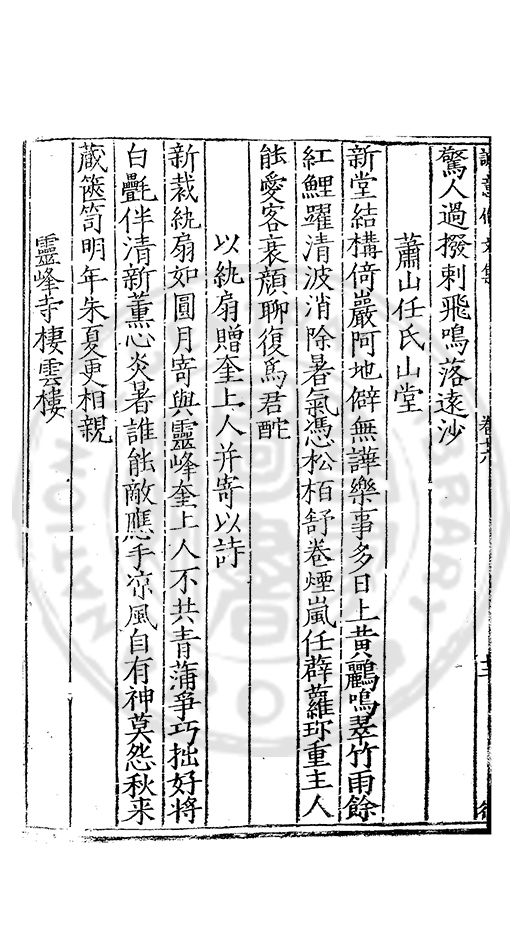 驚人過撥剌飛鳴落遠沙
蕭山任氏山堂
新堂結構倚巖阿地僻無譁樂事多日上黃鸝鳴翠竹雨餘
紅鯉躍清波消除暑氣憑松栢舒卷煙嵐任薜蘿珎重主人
能愛客衰顏聊復為君酡
以紈扇贈奎上人并寄以詩
新裁紈扇如圓月寄與靈峰奎上人不共青蒲爭巧拙好將
白氎伴清新薰心炎暑誰能敵應手凉風自有神莫怨秋来
蔵篋笥明年朱夏更相親
靈峰寺棲雲樓